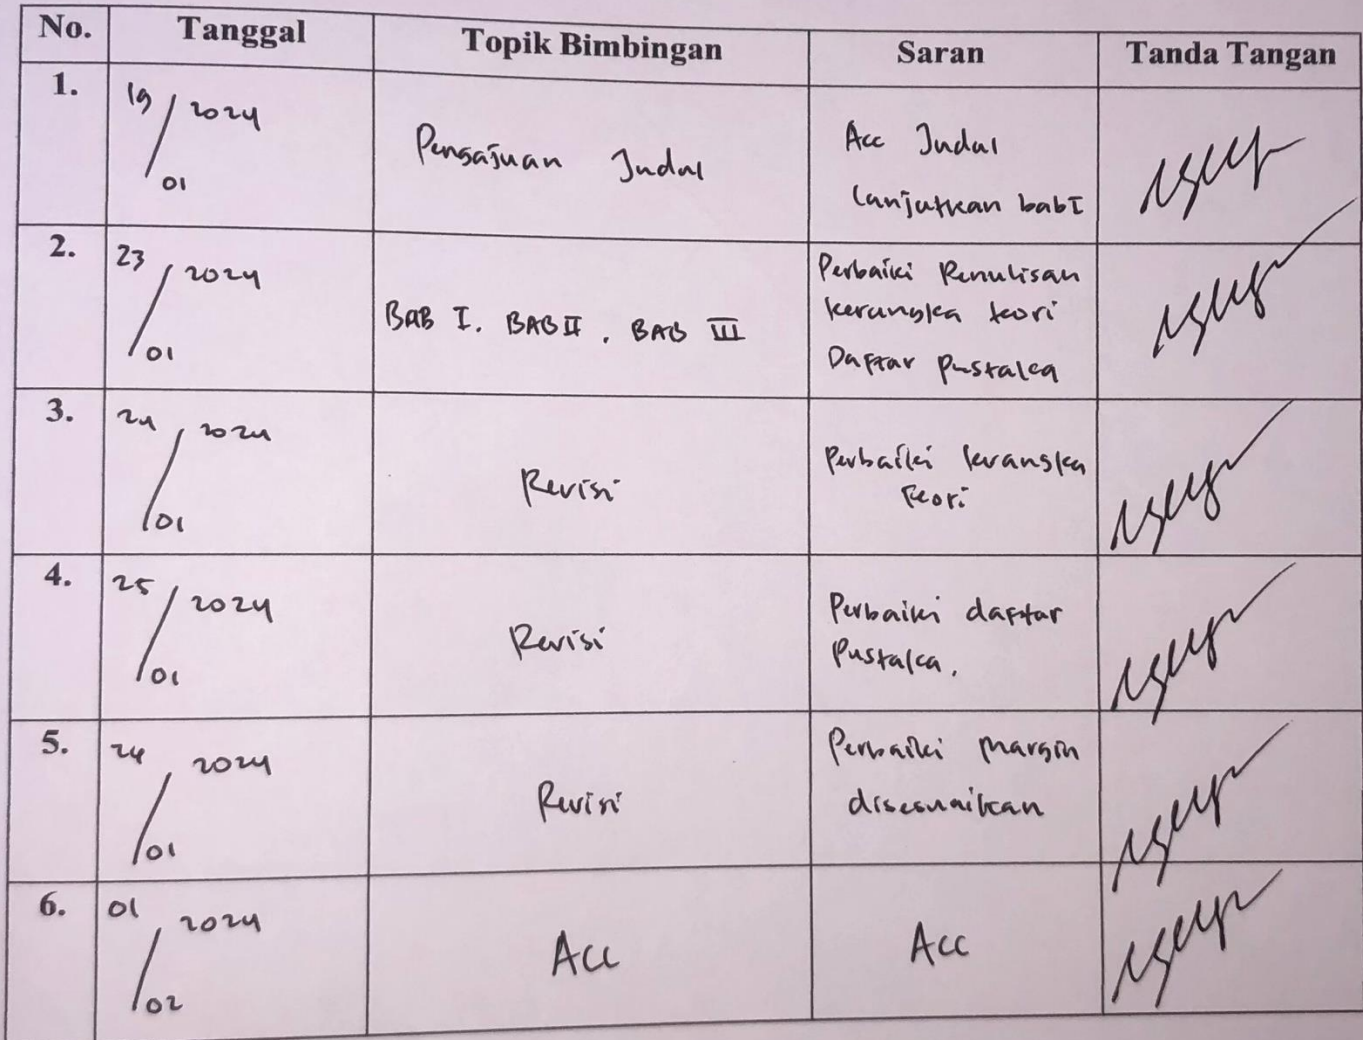 No. Tanggal Topik Bimbingan Saran Tanda Tangan
1. 19/01 2024 Pengajuan Judul Acc Judul
lanjutkan bab I
2. 23/01 2024 BAB I. BAB II. BAB III Perbaiki Penulisan
kerangka teori
Daftar Pustaka
3. 24/01 2024 Revisi Perbaiki kerangka
teori
4. 25/01 2024 Revisi Perbaiki daftar
Pustaka.
5. 2024 Revisi Perbaiki margin
disesuaikan
6. 01/02 2024 Acc Acc